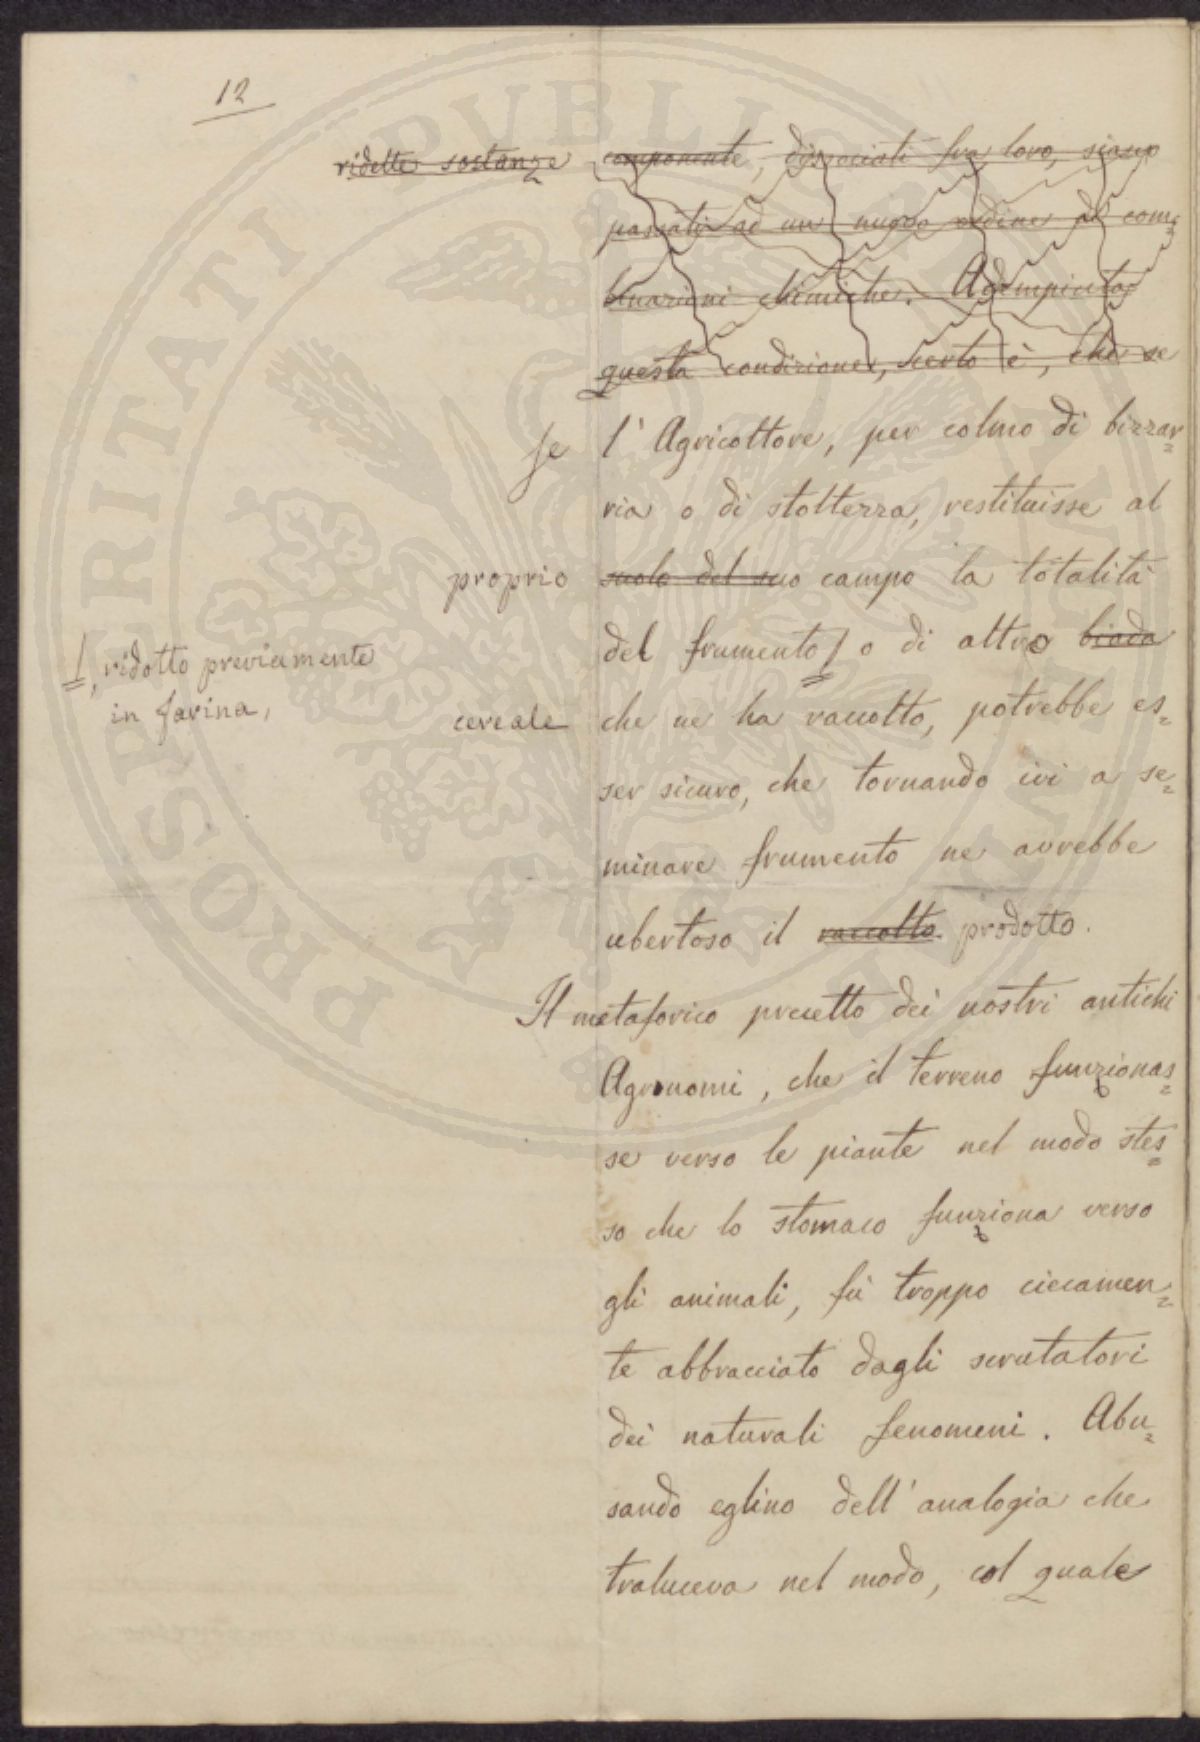 12
ridette sostanze componente, dissociati fra loro, siano
passati ad un nuovo ordine di com=
binazioni chimiche. Adempiuta
questa condizione, certo è, che se
se l'Agricoltore, per colmo di bizzar=
ria o di stoltezza, restituisse al
proprio suolo del suo campo la totalità
del frumento/ o di altro biada
/, ridotto previamente
in farina,
cereale che ne ha raccolto, potrebbe es=
ser sicuro, che tornando ivi a se=
minare frumento ne avrebbe
ubertoso il raccolto prodotto.
Il metaforico precetto dei nostri antichi
Agronomi, che il terreno funzionas=
se verso le piante nel modo stes=
so che lo stomaco funziona verso
gli animali, fù troppo ciecamen=
te abbracciato dagli scrutatori
dei naturali fenomeni. Abu=
sando eglino dell'analogia che
traluceva nel modo, col quale
PROSPERITATI PUBLICAE AUGENDAE